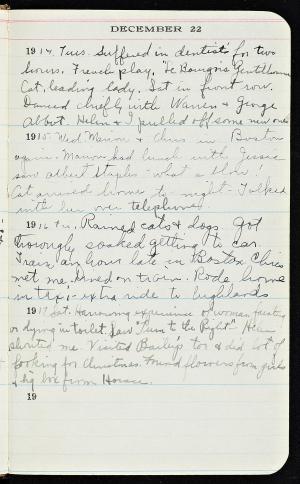 DECEMBER 22
1914. Tues. Suffered in dentist's for two
hours. French play, "Le Bourgeois Gentilhomme
Cat, leading lady. Sat in front row.
Danced chiefly with Warren & George
Abbot. Helen & I pulled off some new ones
1915 Wed. Marion & Chris in Boston
again. Marion had lunch with Jessie
saw Albert Staples - what a blow!
Cat arrived home to-night - Talked
with her over telephone
1916 Fri. Rained cats & dogs. Got
thorougly soaked getting to car.
Train an hour late in Boston Chris
met me. Dined on train. Rode home
in taxi - extra ride to highlands
1917 Sat. Harrowing experience of woman fainting
or dying in toilet. Saw "Turn to the Right" Helen
me Visited Bailey's too & did lot of
looking for Christmas. Found flowers from girls
& big box from Horace.
19